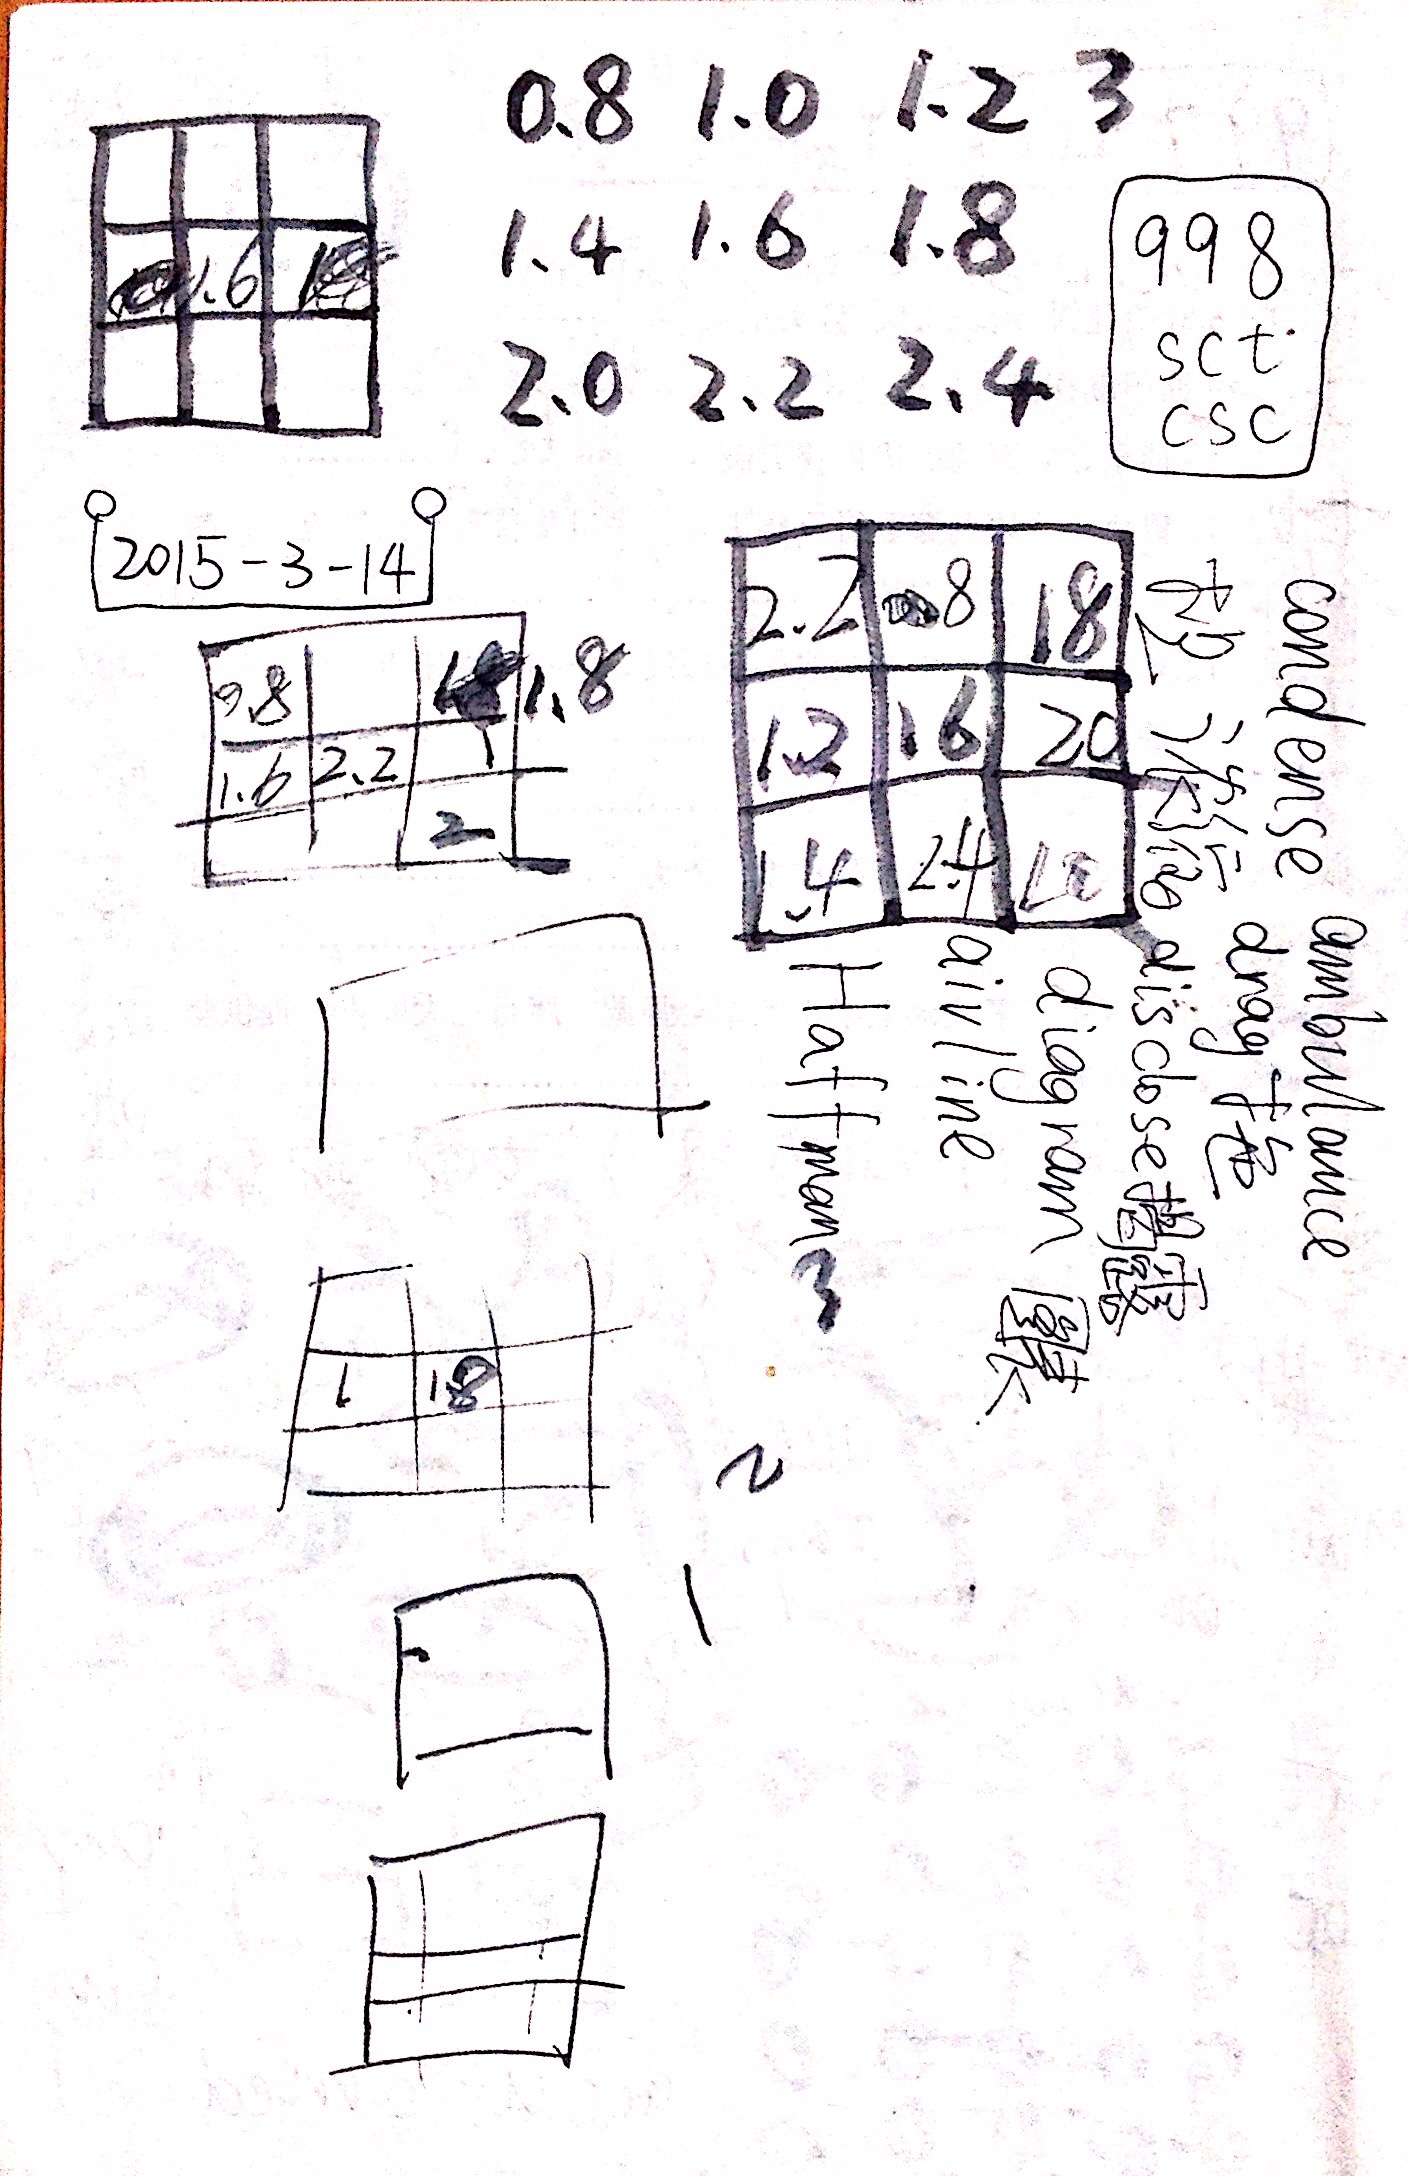 0.8 1.0 1.2 3
1.4 1.6 1.8
2.0 2.2 2.4
1.6
998
sct
csc
2015-3-14
0.8
1.8
1.6 2.2 1
2
2.2 0.8 18
1.2 1.6 20
1.4 2.4
condense
ambulance
drag 拖
disclose 揭露
diagram 圖表
airline
Haffman
3
1 1.8
2
1